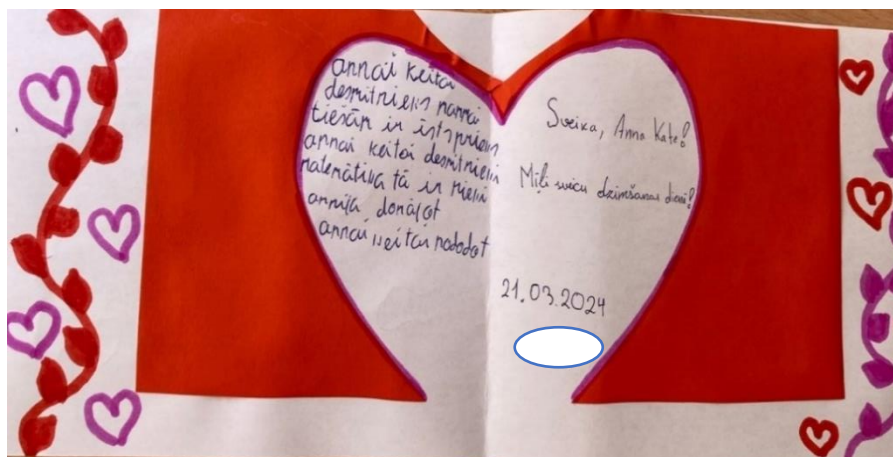 annai keitai
desmitnieks mammai
tiešām ir īsts prieks
annai keitai desmitnieki
matemātika tā ir nieki
annika, donājot
annai keitai nododot
Sveika, Anna Kate!
Mīļi sveicu dzimšanas dienā!
21.03.2024